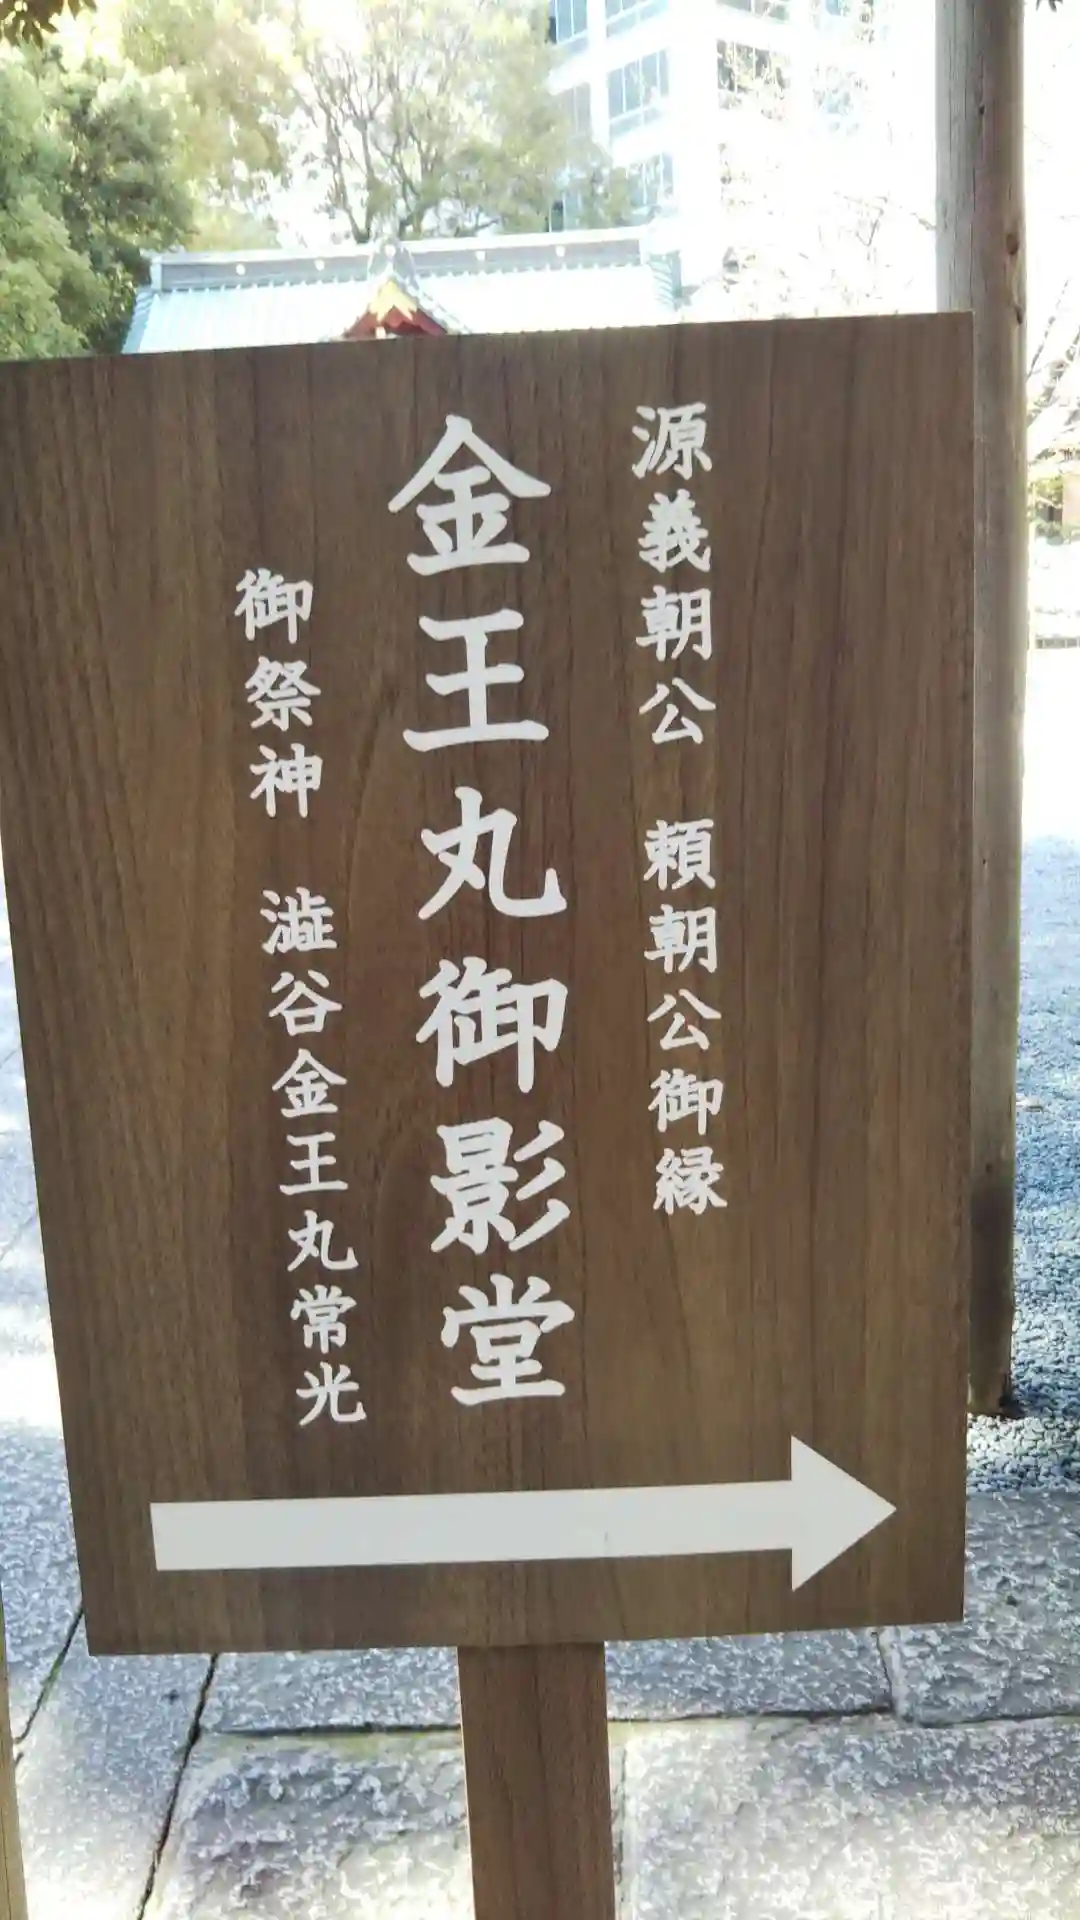 源義朝公 頼朝公御縁
金王丸御影堂
御祭神 澁谷金王丸常光